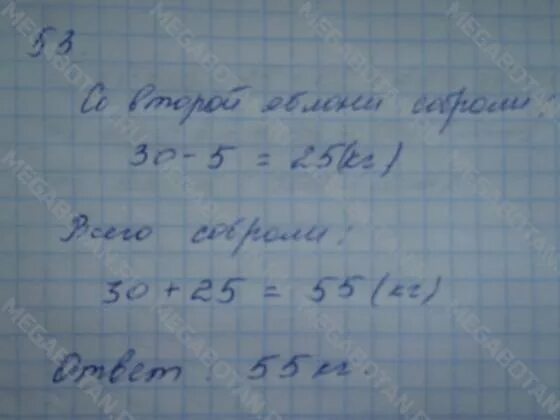 53
Со второй яблони собрали:
30 - 5 = 25(кг)
Всего собрали:
30 + 25 = 55 (кг)
Ответ: 55 кг.
MEGABOTAN